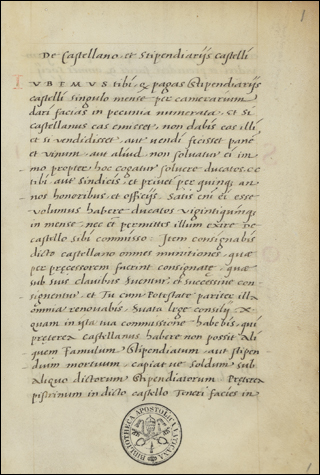 1
De Castellano et Stipendiarijs castelli
IVBEMVS tibi q pagas Stipendiarijs
castelli singulo mense per camerarium
dari facias in pecunia numerata et si
castellanus eas emisset non dabis eas illi
et si vendidisset aut vendi fecisset pane
et vinum aut aliud non soluatur ei im
mo propter hoc cogatur soluere ducatos
tibi aut sindicis et privet per quinq an
nos honoribus et officijs Satis enim ei esse
volumus habere ducatos vigintiquinq
in mense nec et permittes illum extre De
castello sibi commisso Item consignabis
dicto castellano omnes munitiones quae
per precessorem fuerint consignate quae
sub suis clauibus et successiue con
signentur et Tu cum Potestate pariter illa
omnia renouabis Suata lege consilij
quam in ista tua commissione habebis qui
preterea castellanus habere non possit Ali
quem Famulum Stipendiatum aut stipen
dium mortuum capiat ue soldum sub
Aliquo dictorum Stipendiatorum Preterea
pistrinum in dicto castello Teneri facies in
BIBLIOTHECA APOSTOLICA VATICANA